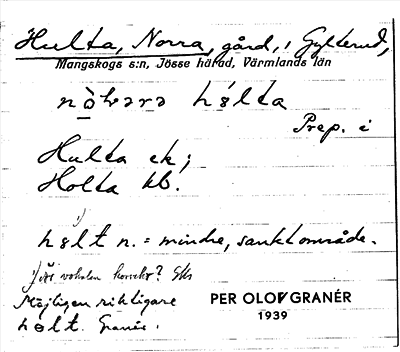 Hulta, Norra, gård, i Gylterud,
Mangskogs s:n, Jösse härad, Värmlands län
nò̱bara hə́lta
Prep. i
Hulta ek;
Holta kb.
1)
həlt n. = mindre, sankt område.
1) Är vokalen korrekt?
Möjligen riktigare
hølt. Granér.
PER OLOF GRANÉR
1939